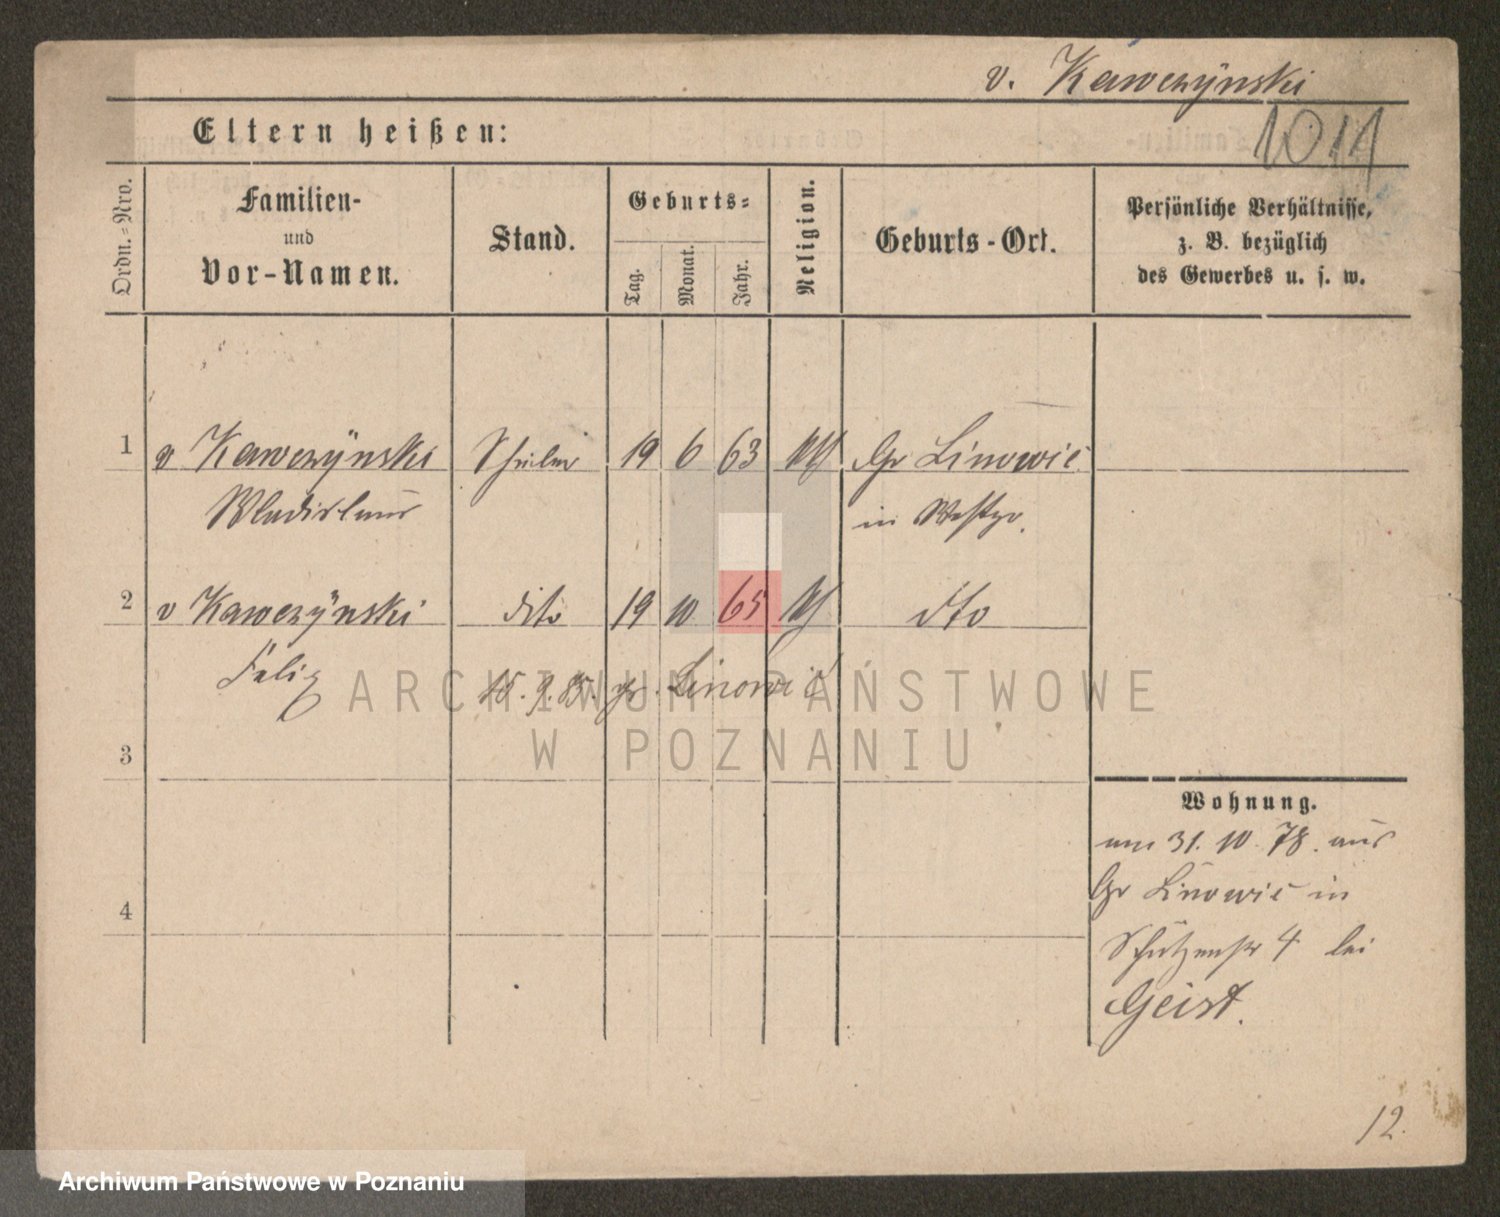 v. Kawczÿnski
1011
Eltern heißen:
Ordn.-Nro.
Familien-
und
Vor-Namen.
Stand.
Geburts-
Tag.
Monat.
Jahr.
Religion.
Geburts-Ort.
Persönliche Verhältnisse,
z. B. bezüglich
des Gewerbes u. s. w.
1 v Kawczÿnski Schüler 19 6 63 Gr Linowiec
Wladislaus in Westpr.
2 v Kawczÿnski dito 19 10 65 dto
Felix 15. 9. 85. gr. Linowiec
3
4
Wohnung.
am 31. 10. 78. aus
Gr Linowiec in
Schützenstr 4 bei
Geist.
12.
ARCHIWUM PAŃSTWOWE
W POZNANIU
Archiwum Państwowe w Poznaniu